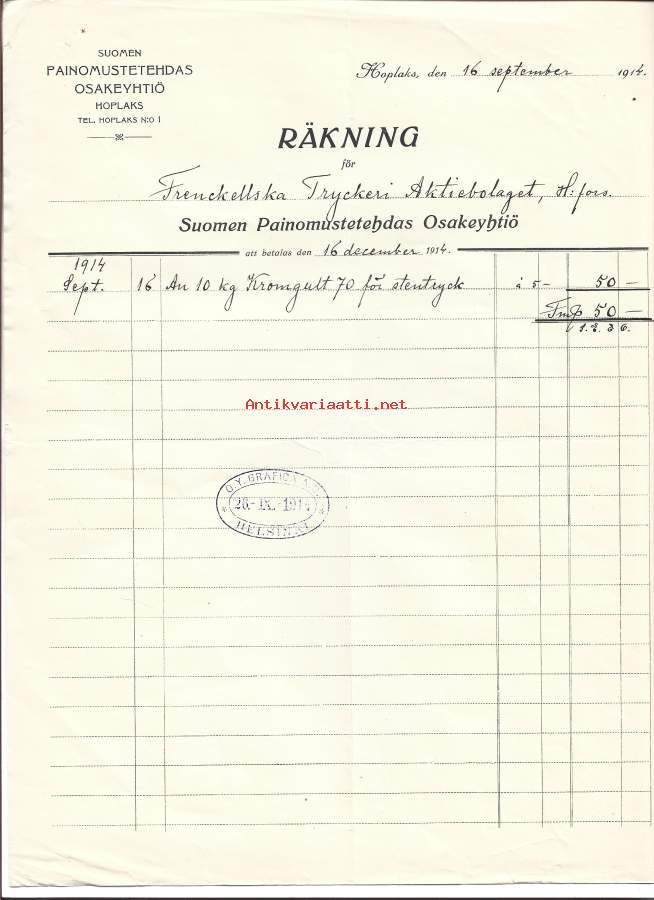 SUOMEN
PAINOMUSTETEHDAS
OSAKEYHTIÖ
HOPLAKS
TEL. HOPLAKS N:O 1
Hoplaks, den 16 september 1914.
RÄKNING
för
Frenckellska Tryckeri Aktiebolaget, H:fors.
Suomen Painomustetehdas Osakeyhtiö
att betalas den 16 december 1914.
1914
Sept. 16 An 10 kg Kromgult 70 för stentryck à 5 – 50 –
Fmp 50 –
1. 2. 3 6.
Antikvariaatti.net
O.Y. GRAFICA A.B.
26.-IX.-1914
* HELSINKI *